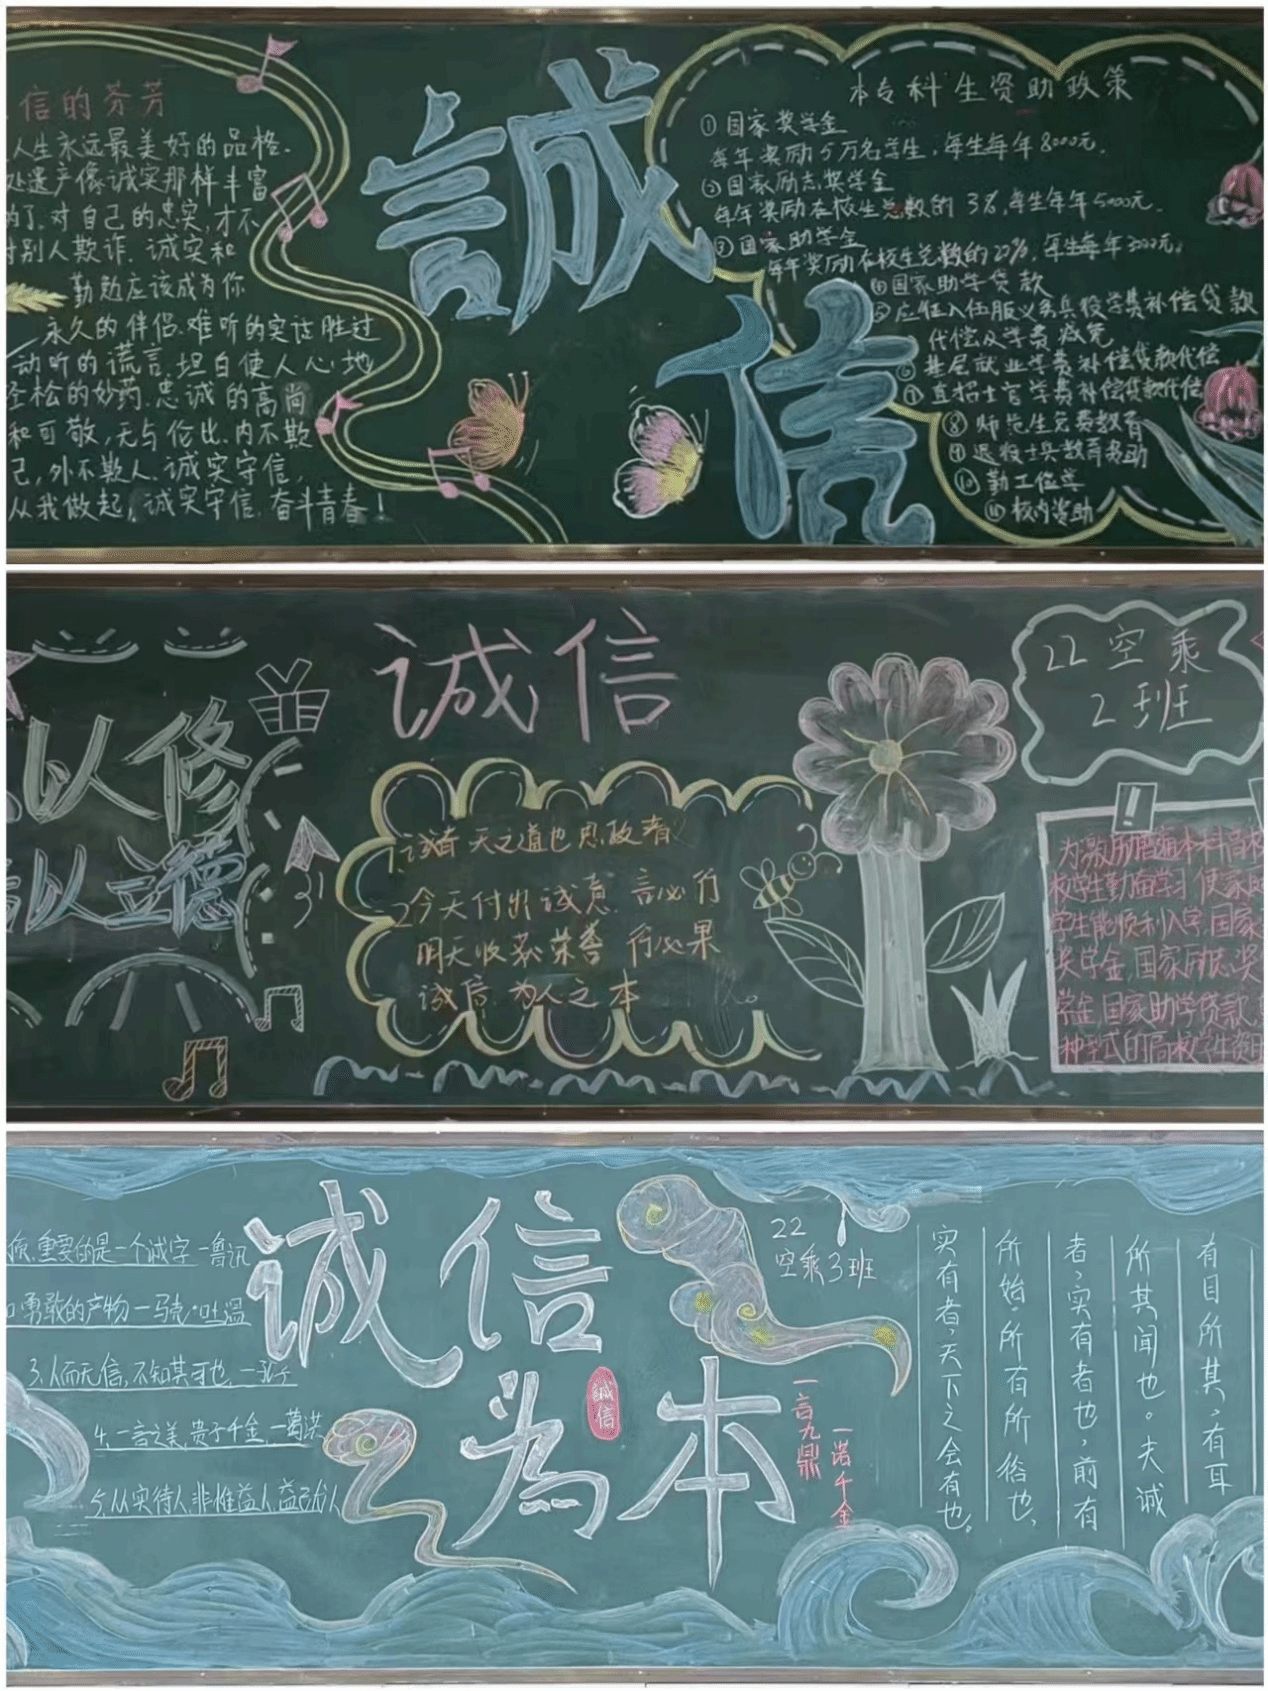 信的芬芳
人生永远最美好的品格.
处遗产像诚实那样丰富
的了.对自己的忠实,才不
对别人欺诈.诚实和
勤勉应该成为你
永久的伴侣.难听的实话胜过
动听的谎言.坦白使人心地
轻松的妙药.忠诚的高尚
和可敬,无与伦比.内不欺
己,外不欺人.诚实守信,
从我做起,诚实守信.奋斗青春!
誠
信
本专科生资助政策
①国家奖学金
每年奖励5万名学生,每生每年8000元.
②国家励志奖学金
每年奖励在校生总数的3%,每生每年5000元.
③国家助学金
每年奖励在校生总数的20%,每生每年3000元.
④国家助学贷款
⑤应征入伍服义务兵役学费补偿贷款
代偿及学费减免
⑥基层就业学费补偿贷款代偿
⑦直招士官学费补偿贷款代偿
⑧师范生免费教育
⑨退役士兵教育资助
⑩勤工俭学
⑪校内资助
以修
以立德
诚信
1.诚者 天之道也 思诚者
2.今天付出诚意 言必行
明天收获荣誉 行必果
诚信 为人之本
22空乘
2班
为激励普通本科高校
校学生勤奋学习
学生能顺利入学,国家
奖学金,国家励志奖
学金,国家助学贷款,
种型式的高校学生资助
重要的是一个诚字—鲁讯
勇敢的产物—马克·吐温
3.人而无信,不知其可也.—孔子
4.一言之美,贵于千金.—葛洪
5.从实待人,非惟益人,益己尤大
诚信
为本
誠信
22
空乘3班
一言九鼎
一诺千金
有目所其,有耳
所其闻也。夫诚
者,实有者也,前有
所始,所有所终也,
实有者,天下之会有也。